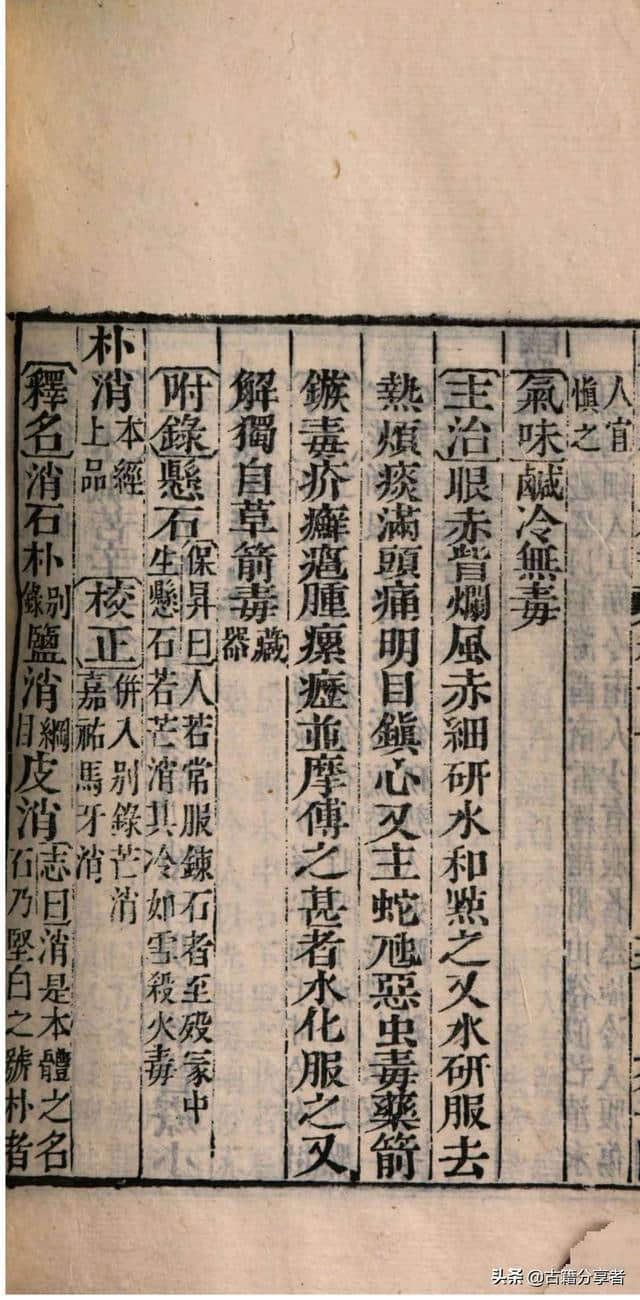 人宜
慎之
氣味鹹冷無毒
主治眼赤眥爛風赤細研水和㸃之又水研服去
熱煩痰滿頭痛明目鎮心又主蛇虺惡虫毒藥箭
鏃毒疥癬瘡腫瘰癧並摩傅之甚者水化服之又
解獨自草箭毒藏器
附錄懸石保昇曰人若常服鍊石者至殁冢中
生懸石若芒消其冷如雪殺火毒
朴消本經上品 校正併入别錄芒消
嘉祐馬牙消
釋名消石朴别錄鹽消綱目皮消志曰消是本體之名
石乃堅白之號朴者
头条 @古籍分享者